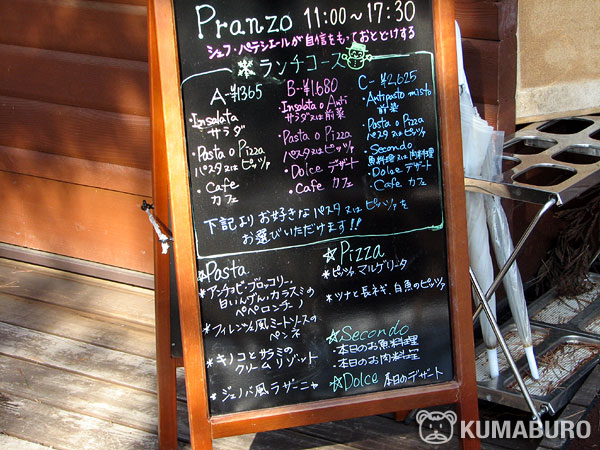 Pranzo 11:00~17:30
シェフ・パティシエールが自信をもっておとどけする
ランチコース
A-¥1365
・Insalata
サラダ
・Pasta o Pizza
パスタ又はピッツァ
・Cafe
カフェ
B-¥1,680
・Insalata o Anti
サラダ又は前菜
・Pasta o Pizza
パスタ又はピッツァ
・Dolce デザート
・Cafe カフェ
C-¥2,625
・Antipasto misto
前菜
・Pasta o Pizza
パスタ又はピッツァ
・Secondo
魚料理又は肉料理
・Dolce デザート
・Cafe カフェ
下記よりお好きなパスタ又はピッツァを
お選びいただけます!!
☆Pasta
*アンチョビ・ブロッコリー・
白いんげん・カラスミの
ペペロンチーノ
*フィレンツェ風ミートソースの
ペンネ
*キノコとサラミの
クリームリゾット
*ジェノバ風ラザーニャ
☆Pizza
*ピッツァ マルゲリータ
*ツナと長ネギ、白魚のピッツァ
☆Secondo
・本日のお魚料理
・本日のお肉料理
☆Dolce 本日のデザート
KUMABURO